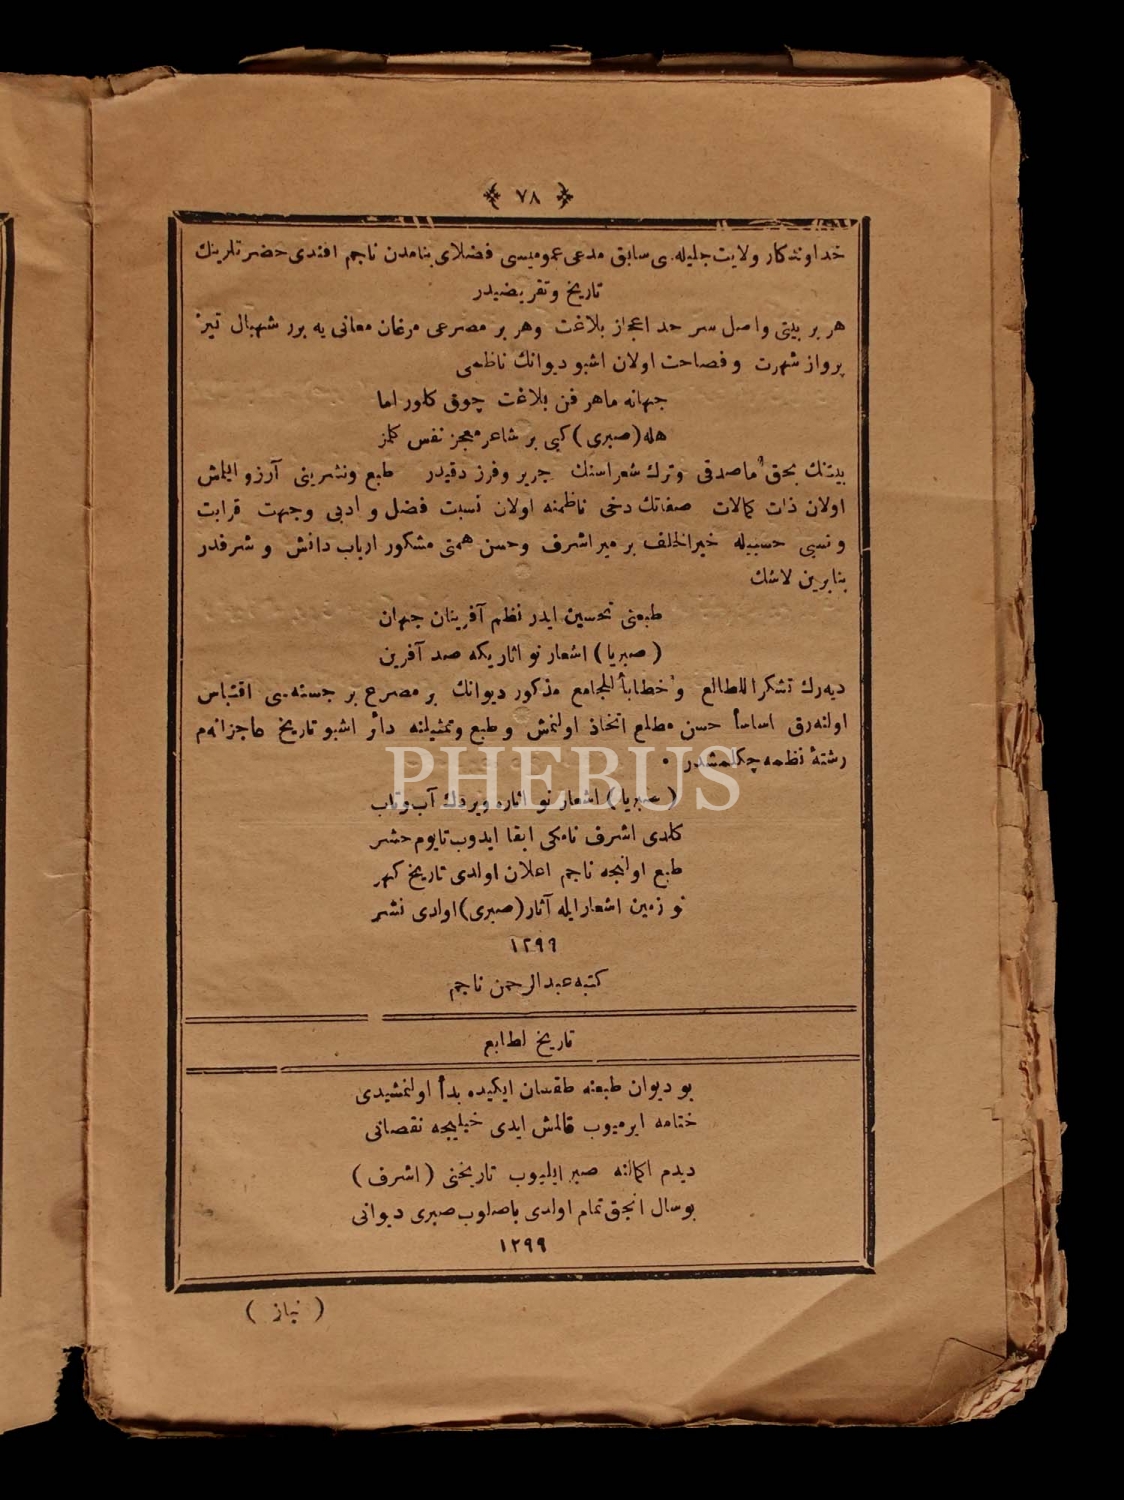 ٧٨
خداوندكار ولايت جليله‌ى سابق مدعى عموميسى فضلاى بنامدن ناجم افندى حضرتلرينك
تاريخ وتقريضيدر
هر بر بيتى واصل سر حد اعجاز بلاغت وهر بر مصرعى مرغان معانى يه برر شهبال تيز
پرواز شهرت وفصاحت اولان اشبو ديوانك ناظمى
جهانه ماهر فن بلاغت چوق كلور اما
هله (صبرى) كبى بر شاعر معجز نفس كلمز
بيتنك بحق ماصدقى وترك شعراسنك جرير وفرزدقيدر طبع ونشرينى آرزو ايلمش
اولان ذات كمالات صفاتك دخى ناظمنه اولان نسبت فضل وادبى وجهت قرابت
ونسبى حسبيله خيرالخلف بر مير اشرف وحسن همتى مشكور ارباب دانش وشرفدر
بنابرين لاشك
طبعنى تحسين ايدر نظم آفرينان جهان
(صبريا) اشعار نو اثاريكه صد آفرين
ديه‌رك تشكرا للطالع وخطابأ للمجامع مذكور ديوانك بر مصرع بر جسته‌سى اقتباس
اولنه‌رق اساسأ حسن مطلع اتخاذ اولنمش وطبع وتمثيلنه دائر اشبو تاريخ عاجزانه‌م
رشتهٔ نظمه چكلمشدر ٠
(صبريا) اشعار نو اثاره ويردك آب وتاب
كلدى اشرف نامكى ابقا ايدوب تايوم حشر
طبع اولنجه ناجم اعلان اولدى تاريخ كهر
نو زمين اشعار ايله آثار (صبرى) اولدى نشر
١٢٩٩
كتبه عبدالرحمن ناجم
تاريخ لطابع
بو ديوان طبعنه طقسان ايكيده بدأ اولنمشيدى
ختامه ايرميوب قالمش ايدى خيليجه نقصانى
ديدم اكمالنه صبر ايليوب تاريخنى (اشرف)
بو سال انجق تمام اولدى باصلوب صبرى ديوانى
١٢٩٩
(نياز)
PHEBUS